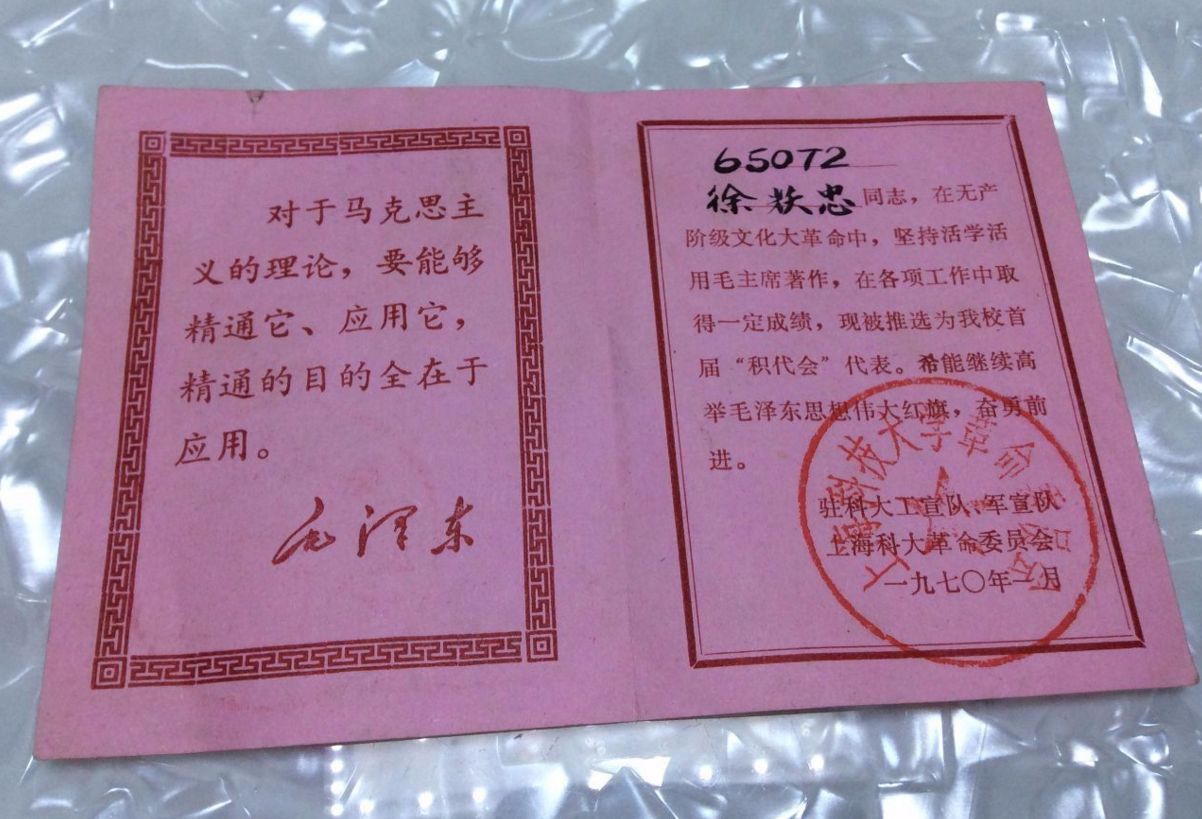 对于马克思主
义的理论，要能够
精通它、应用它，
精通的目的全在于
应用。
毛泽东
65072
徐 忠同志，在无产
阶级文化大革命中，坚持活学活
用毛主席著作，在各项工作中取
得一定成绩，现被推选为我校首
届“积代会”代表。希能继续高
举毛泽东思想伟大红旗，奋勇前
进。
驻科大工宣队、军宣队
上海科大革命委员会
一九七〇年一月
上海科技大学革命委员会